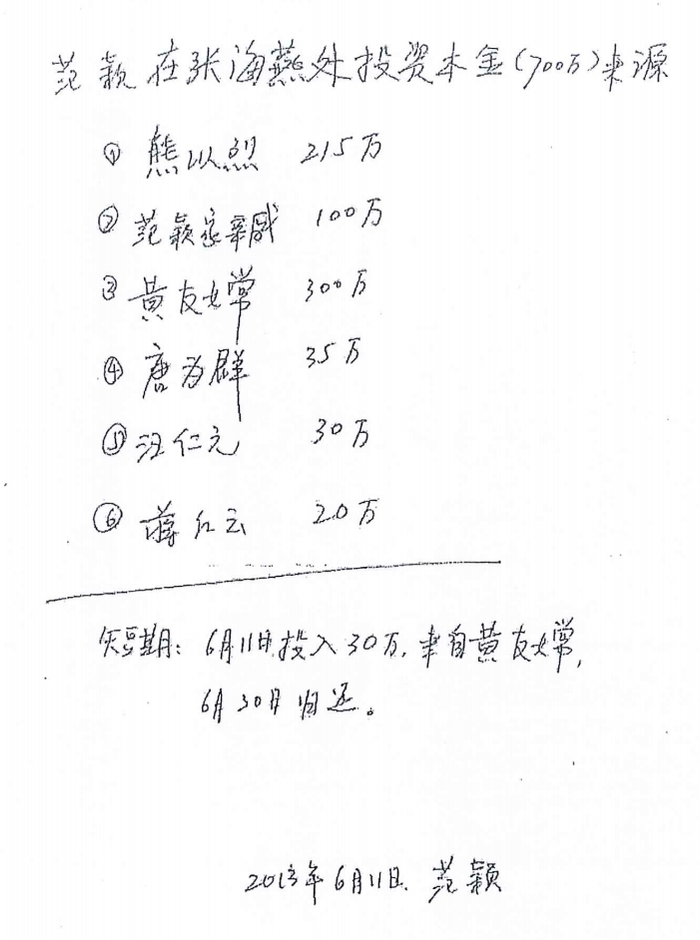 范颖在张海燕处投资本金(700万)来源
① 熊以烈 215万
② 范颖家亲戚 100万
③ 黄友嫦 300万
④ 唐为群 35万
⑤ 汪仁元 30万
⑥ 蒋仁云 20万
短期：6月11日投入30万，来自黄友嫦，
6月30日归还。
2013年6月11日 范颖